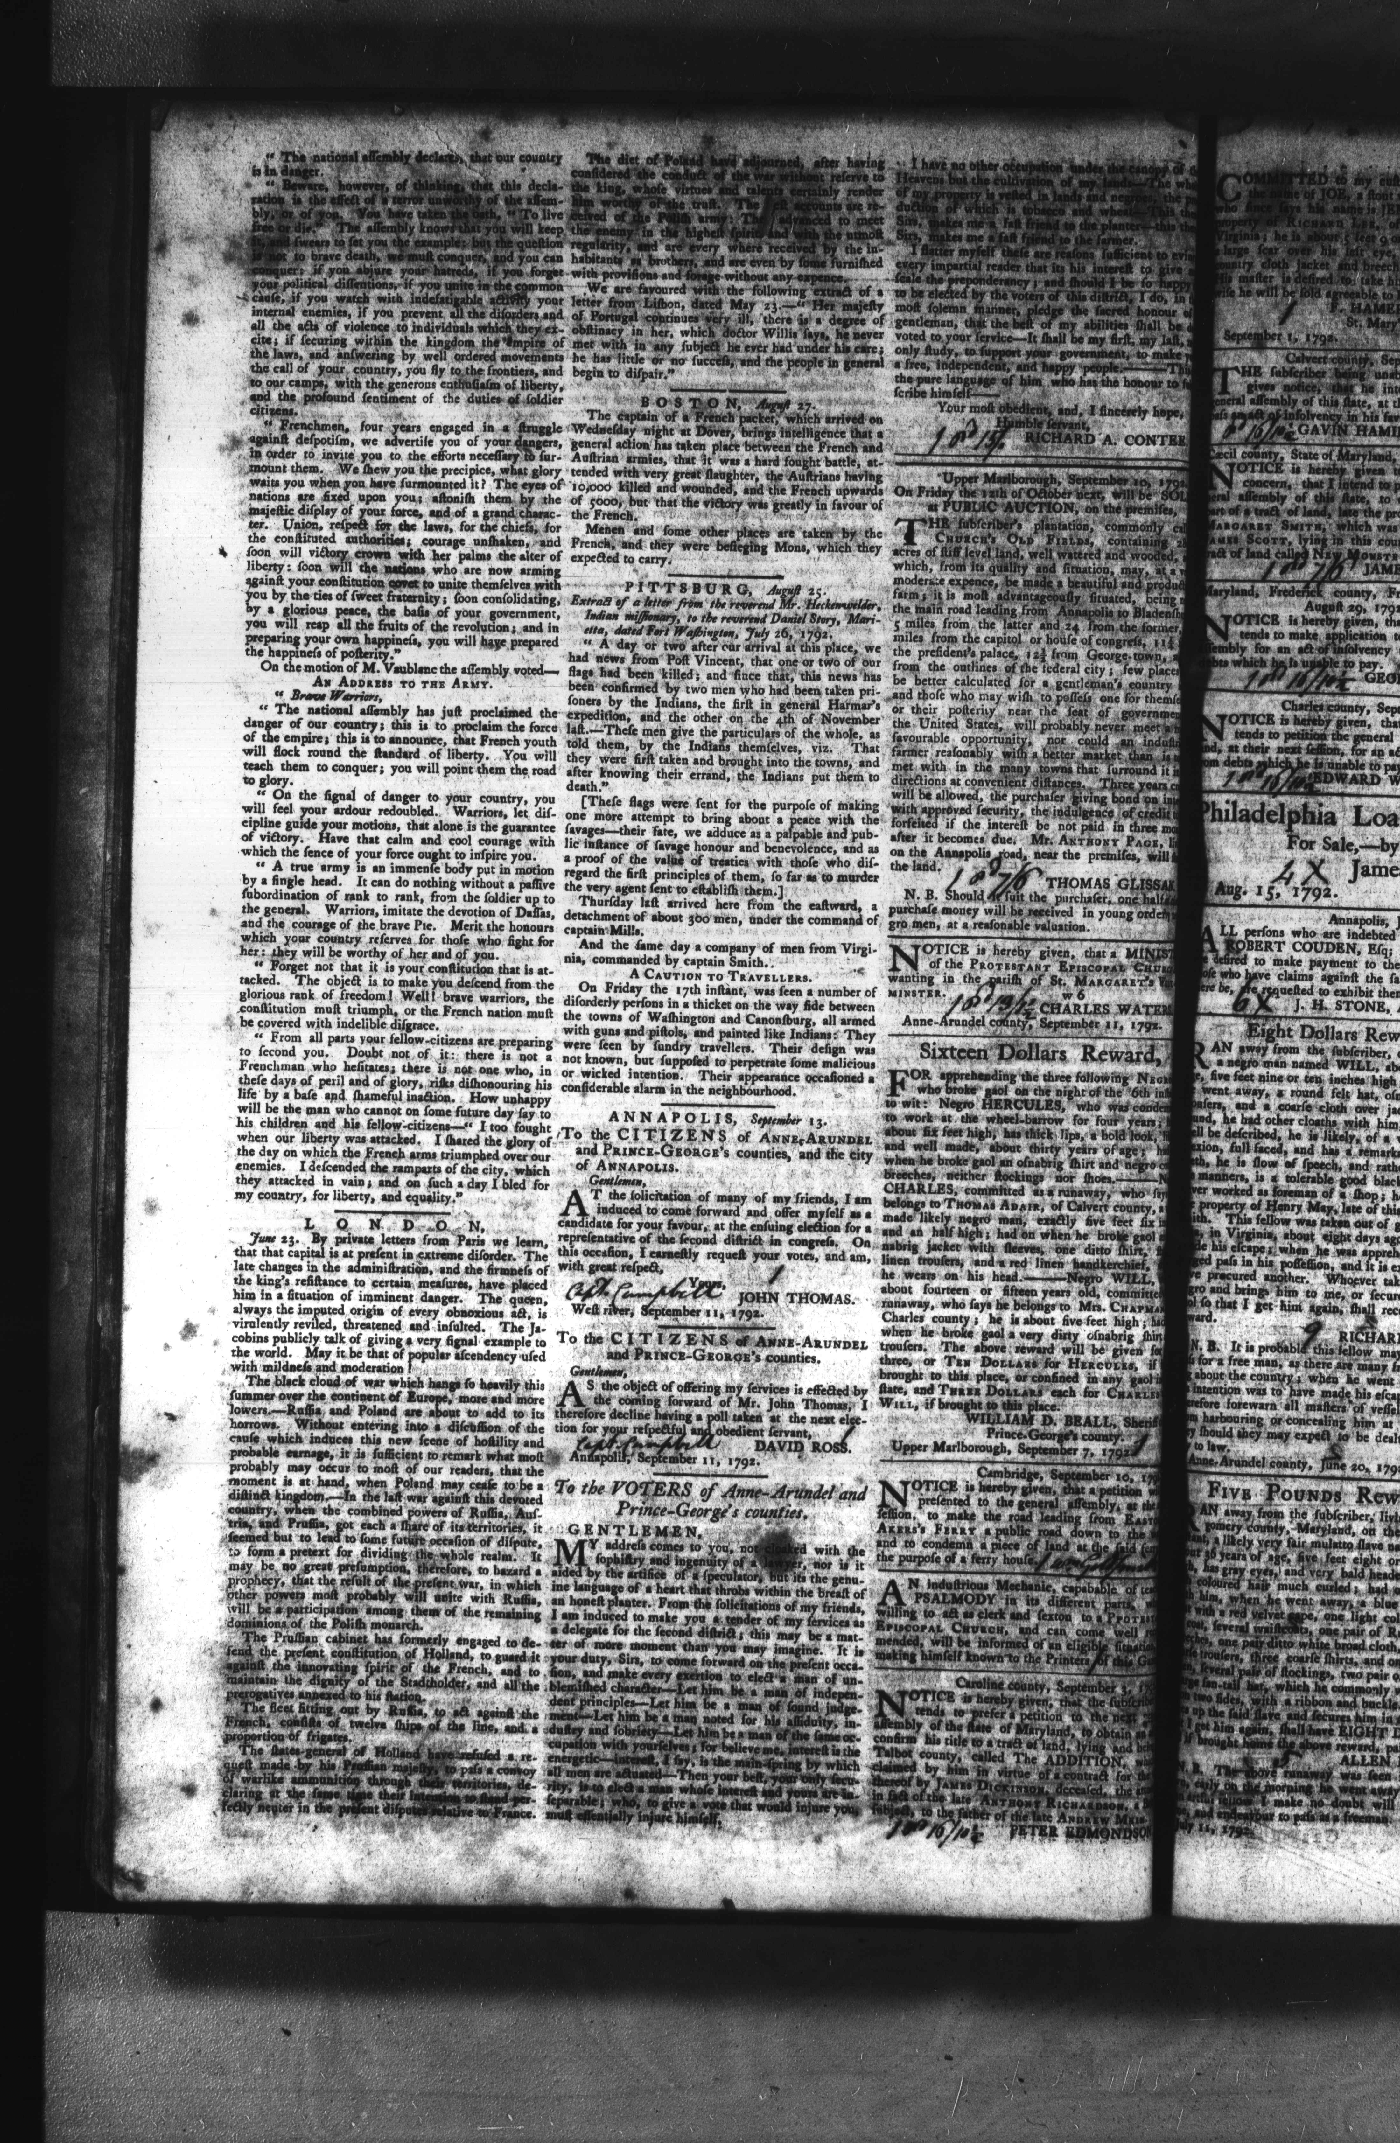 “ The national aſſembly declares, that our country
is in danger.
“ Beware, however, of thinking, that this decla-
ration is the effect of a terror unworthy of the aſſem-
bly, or of you. You have taken the oath, “ To live
free or die.” The aſſembly knows that you will keep
it, and ſwears to ſet you the example; but the queſtion
is not to brave death, we muſt conquer, and you can
conquer; if you abjure your hatreds, if you forget
your political diſſentions, if you unite in the common
cauſe, if you watch with indefatigable activity your
internal enemies, if you prevent all the diſorders and
all the acts of violence to individuals which they ex-
cite; if ſecuring within the kingdom the empire of
the laws, and anſwering by well ordered movements
the call of your country, you fly to the frontiers, and
to our camps, with the generous enthuſiaſm of liberty,
and the profound ſentiment of the duties of ſoldier
citizens.
“ Frenchmen, four years engaged in a ſtruggle
againſt deſpotiſm, we advertiſe you of your dangers,
in order to invite you to the efforts neceſſary to ſur-
mount them. We ſhew you the precipice, what glory
waits you when you have ſurmounted it? The eyes of
nations are fixed upon you; aſtoniſh them by the
majeſtic diſplay of your force, and of a grand charac-
ter. Union, reſpect for the laws, for the chiefs, for
the conſtituted authorities; courage unſhaken, and
ſoon will victory crown with her palms the alter of
liberty: ſoon will the nations who are now arming
againſt your conſtitution covet to unite themſelves with
you by the ties of ſweet fraternity; ſoon conſolidating,
by a glorious peace, the baſis of your government,
you will reap all the fruits of the revolution; and in
preparing your own happineſs, you will have prepared
the happineſs of poſterity.”
On the motion of M. Vaublanc the aſſembly voted—
AN ADDRESS TO THE ARMY.
“ Brave Warriors,
“ The national aſſembly has juſt proclaimed the
danger of our country; this is to proclaim the force
of the empire; this is to announce, that French youth
will flock round the ſtandard of liberty. You will
teach them to conquer; you will point them the road
to glory.
“ On the ſignal of danger to your country, you
will feel your ardour redoubled. Warriors, let diſ-
cipline guide your motions, that alone is the guarantee
of victory. Have that calm and cool courage with
which the ſence of your force ought to inſpire you.
“ A true army is an immenſe body put in motion
by a ſingle head. It can do nothing without a paſſive
ſubordination of rank to rank, from the ſoldier up to
the general. Warriors, imitate the devotion of Daſſas,
and the courage of the brave Pie. Merit the honours
which your country reſerves for thoſe who fight for
her: they will be worthy of her and of you.
“ Forget not that it is your conſtitution that is at-
tacked. The object is to make you deſcend from the
glorious rank of freedom! Well! brave warriors, the
conſtitution muſt triumph, or the French nation muſt
be covered with indelible diſgrace.
“ From all parts your fellow-citizens are preparing
to ſecond you. Doubt not of it: there is not a
Frenchman who heſitates; there is not one who, in
theſe days of peril and of glory, riſks diſhonouring his
life by a baſe and ſhameful inaction. How unhappy
will be the man who cannot on ſome future day ſay to
his children and his fellow-citizens—“ I too fought
when our liberty was attacked. I ſhared the glory of
the day on which the French arms triumphed over our
enemies. I deſcended the ramparts of the city, which
they attacked in vain; and on ſuch a day I bled for
my country, for liberty, and equality.”
LONDON,
June 23. By private letters from Paris we learn,
that that capital is at preſent in extreme diſorder. The
late changes in the adminiſtration, and the firmneſs of
the king's reſiſtance to certain meaſures, have placed
him in a ſituation of imminent danger. The queen,
always the imputed origin of every obnoxious act, is
virulently reviled, threatened and inſulted. The Ja-
cobins publicly talk of giving a very ſignal example to
the world. May it be that of popular aſcendency uſed
with mildneſs and moderation!
The black cloud of war which hangs ſo heavily this
ſummer over the continent of Europe, more and more
lowers.—Ruſſia and Poland are about to add to its
horrows. Without entering into a diſcuſſion of the
cauſe which induces this new ſcene of hoſtility and
probable carnage, it is ſufficient to remark what moſt
probably may occur to moſt of our readers, that the
moment is at hand, when Poland may ceaſe to be a
diſtinct kingdom.—In the laſt war againſt this devoted
country, when the combined powers of Ruſſia, Auſ-
tria, and Pruſſia, got each a ſhare of its territories, it
ſeemed but to lead to ſome future occaſion of diſpute,
to form a pretext for dividing the whole realm. It
may be no great preſumption, therefore, to hazard a
prophecy, that the reſult of the preſent war, in which
other powers moſt probably will unite with Ruſſia,
will be a participation among them of the remaining
dominions of the Poliſh monarch.
The Pruſſian cabinet has formerly engaged to de-
fend the preſent conſtitution of Holland, to guard it
againſt the innovating ſpirit of the French, and to
maintain the dignity of the Stadtholder, and all the
prerogatives annexed to his ſtation.
The fleet fitting out by Ruſſia, to act againſt the
French, conſiſts of twelve ſhips of the line, and a
proportion of frigates.
The ſtates-general of Holland have refuſed a re-
queſt made by his Pruſſian majeſty, to paſs a convoy
of warlike ammunition through their territories, de-
claring at the ſame time their intention to ſtand per-
fectly neuter in the preſent diſputes relative to France.
The diet of Poland have adjourned, after having
conſidered the conduct of the war without reſerve to
the king, whoſe virtues and talents certainly render
him worthy of the truſt. The laſt accounts are re-
ceived of the Poliſh army: They advanced to meet
the enemy in the higheſt ſpirits and with the utmoſt
regularity, and are every where received by the in-
habitants as brothers, and are even by ſome furniſhed
with proviſions and forage without any expence.
We are favoured with the following extract of a
letter from Liſbon, dated May 23.—“ Her majeſty
of Portugal continues very ill, there is a degree of
obſtinacy in her, which doctor Willis ſays, he never
met with in any ſubject he ever had under his care;
he has little or no ſucceſs, and the people in general
begin to diſpair.”
BOSTON, Auguſt 27.
The captain of a French packet, which arrived on
Wedneſday night at Dover, brings intelligence that a
general action has taken place between the French and
Auſtrian armies, that it was a hard fought battle, at-
tended with very great ſlaughter, the Auſtrians having
10,000 killed and wounded, and the French upwards
of 5000, but that the victory was greatly in favour of
the French.
Menen and ſome other places are taken by the
French, and they were beſieging Mons, which they
expected to carry.
PITTSBURG, Auguſt 25.
Extract of a letter from the reverend Mr. Heckenwelder,
Indian miſſionary, to the reverend Daniel Story, Mari-
etta, dated Fort Waſhington, July 26, 1792.
“ A day or two after our arrival at this place, we
had news from Poſt Vincent, that one or two of our
flags had been killed; and ſince that, this news has
been confirmed by two men who had been taken pri-
ſoners by the Indians, the firſt in general Harmar's
expedition, and the other on the 4th of November
laſt.—Theſe men give the particulars of the whole, as
told them, by the Indians themſelves, viz. That
they were firſt taken and brought into the towns, and
after knowing their errand, the Indians put them to
death.”
[Theſe flags were ſent for the purpoſe of making
one more attempt to bring about a peace with the
ſavages—their fate, we adduce as a palpable and pub-
lic inſtance of ſavage honour and benevolence, and as
a proof of the value of treaties with thoſe who diſ-
regard the firſt principles of them, ſo far as to murder
the very agent ſent to eſtabliſh them.]
Thurſday laſt arrived here from the eaſtward, a
detachment of about 300 men, under the command of
captain Mills.
And the ſame day a company of men from Virgi-
nia, commanded by captain Smith.
A CAUTION TO TRAVELLERS.
On Friday the 17th inſtant, was ſeen a number of
diſorderly perſons in a thicket on the way ſide between
the towns of Waſhington and Canonſburg, all armed
with guns and piſtols, and painted like Indians: They
were ſeen by ſundry travellers. Their deſign was
not known, but ſuppoſed to perpetrate ſome malicious
or wicked intention. Their appearance occaſioned a
conſiderable alarm in the neighbourhood.
ANNAPOLIS, September 13.
To the CITIZENS of ANNE-ARUNDEL
and PRINCE-GEORGE'S counties, and the city
of ANNAPOLIS.
Gentlemen,
AT the ſolicitation of many of my friends, I am
induced to come forward and offer myſelf as a
candidate for your favour, at the enſuing election for a
repreſentative of the ſecond diſtrict in congreſs. On
this occaſion, I earneſtly requeſt your votes, and am,
with great reſpect,
Yours, 1
Capt. Campbell JOHN THOMAS.
Weſt river, September 11, 1792.
To the CITIZENS of ANNE-ARUNDEL
and PRINCE-GEORGE'S counties.
Gentlemen,
AS the object of offering my ſervices is effected by
the coming forward of Mr. John Thomas, I
therefore decline having a poll taken at the next elec-
tion for your reſpectful and obedient ſervant, 1
Capt. Campbell DAVID ROSS.
Annapolis, September 11, 1792.
To the VOTERS of Anne-Arundel and
Prince-George's counties.
GENTLEMEN,
MY addreſs comes to you, not cloaked with the
ſophiſtry and ingenuity of a lawyer, nor is it
aided by the artifice of a ſpeculator, but its the genu-
ine language of a heart that throbs within the breaſt of
an honeſt planter. From the ſolicitations of my friends,
I am induced to make you a tender of my ſervices as
a delegate for the ſecond diſtrict; this may be a mat-
ter of more moment than you may imagine. It is
your duty, Sirs, to come forward on the preſent occa-
ſion, and make every exertion to elect a man of un-
blemiſhed character—Let him be a man of indepen-
dent principles—Let him be a man of ſound judge-
ment—Let him be a man noted for his aſſiduity, in-
duſtry and ſobriety—Let him be a man of the ſame oc-
cupation with yourſelves; for believe me, intereſt is the
energetic—intereſt, I ſay, is the main-ſpring by which
all men are actuated—Then your beſt, your only ſecu-
rity, is to elect a man whoſe intereſt and yours are in-
ſeparable; who, to give a vote that would injure you,
muſt eſſentially injure himſelf.
I have no other occupation under the canopy of
Heavens but the cultivation of my lands—The
of my property is veſted in lands and negroes; the
duction of which is tobacco and wheat—This
Sirs, makes me a faſt friend to the planter—this
Sirs, makes me a faſt friend to the farmer.
I flatter myſelf theſe are reaſons ſufficient to
every impartial reader that its his intereſt to give
ſcale the preponderancy; and ſhould I be ſo happy
to be elected by the voters of this diſtrict, I do, in
moſt ſolemn manner, pledge the ſacred honour of
gentleman, that the beſt of my abilities ſhall be
voted to your ſervice—It ſhall be my firſt, my laſt,
only ſtudy, to ſupport your government, to make
a free, independent, and happy people.——
the pure language of him who has the honour to
ſcribe himſelf—
Your moſt obedient, and, I ſincerely hope,
Humble ſervant,
RICHARD A. CONTEE
Upper Marlborough, September 10, 1792
On Friday the 12th of October next, will be SOL
at PUBLIC AUCTION, on the premiſes,
THE ſubſcriber's plantation, commonly
CHURCH'S OLD FIELDS, containing
acres of ſtiff level land, well watered and wooded,
which, from its quality and ſituation, may, at a
moderate expence, be made a beautiful and
farm; it is moſt advantageouſly ſituated, being
the main road leading from Annapolis to
5 miles from the latter and 24 from the former,
miles from the capitol or houſe of congreſs, 11½
the preſident's palace, 12½ from George-town,
from the outlines of the federal city; few places
be better calculated for a gentleman's country
and thoſe who may wiſh to poſſeſs one for
or their poſterity, near the ſeat of
the United States, will probably never meet
favourable opportunity, nor could an
farmer reaſonably wiſh a better market than is
met with in the many towns that ſurround it
directions at convenient diſtances. Three years
will be allowed, the purchaſer giving bond on
with approved ſecurity, the indulgence of credit
forfeited if the intereſt be not paid in three
after it becomes due. Mr. ANTHONY PAGE,
on the Annapolis road, near the premiſes, will
the land.
7/6 THOMAS GLISSAN
N. B. Should it ſuit the purchaſer, one half
purchaſe money will be received in young orderly
gro men, at a reaſonable valuation.
NOTICE is hereby given, that a MINIST
of the PROTESTANT EPISCOPAL CHURCH
wanting in the pariſh of ST. MARGARET'S
MINSTER. w 6
CHARLES WATER
Anne-Arundel county, September 11, 1792.
Sixteen Dollars Reward,
FOR apprehending the three following
who broke gaol on the night of the 6th
to wit: Negro HERCULES, who was
to work at the wheel-barrow for four years;
about ſix feet high, has thick lips, a bold look,
and well made, about thirty years of age;
when he broke gaol an oſnabrig ſhirt and negro
breeches, neither ſtockings nor ſhoes.——
CHARLES, committed as a runaway, who
belongs to THOMAS ADAIR, of Calvert county,
made likely negro man, exactly five feet ſix
and an half high; had on when he broke gaol
nabrig jacket with ſleeves, one ditto ſhirt,
linen trouſers, and a red linen handkerchief,
he wears on his head.——Negro WILL,
about fourteen or fifteen years old, committed
runaway, who ſays he belongs to Mrs. CHAPMAN
Charles county; he is about five feet high;
when he broke gaol a very dirty oſnabrig ſhirt
trouſers. The above reward will be given for
three, or TEN DOLLARS for HERCULES, if
brought to this place, or confined in any gaol
ſtate, and THREE DOLLARS each for CHARLES
WILL, if brought to this place.
WILLIAM D. BEALL, Sheriff
Prince-George's county.
Upper Marlborough, September 7, 1792.
Cambridge, September 10,
NOTICE is hereby given, that a petition
preſented to the general aſſembly, at the
ſeſſion, to make the road leading from EAST
AKERS'S FERRY a public road down to the
and to condemn a piece of land at the ſaid
the purpoſe of a ferry houſe.
AN induſtrious Mechanic, capable of
PSALMODY in its different parts,
willing to act as clerk and ſexton to a
EPISCOPAL CHURCH, and can come well
mended, will be informed of an eligible
making himſelf known to the Printers of this
Caroline county, September 3,
NOTICE is hereby given, that the
tends to prefer a petition to the next
aſſembly of the ſtate of Maryland, to obtain
confirm his title to a tract of land, lying and
Talbot county, called The ADDITION,
claimed by him in virtue of a contract for
thereof by JAMES DICKINSON, deceaſed,
in fact of the late ANTHONY RICHARDSON,
ſubject, to the father of the late ANDREW
PETER EDMONDSON
COMMITTED to my
the name of JOE, a ſtout
who ſince ſays his name is
property of RICHARD LEE,
Virginia; he is about 5 feet
large ſcar over his left eye,
country cloth jacket and
His maſter is deſired to take
wiſe he will be ſold agreeable to
St. Mar
September 1, 1792.
Calvert county,
THE ſubſcriber being
gives notice, that he
general aſſembly of this ſtate, at
act of inſolvency in his
GAVIN HAMIL
Cecil county, State of Maryland,
NOTICE is hereby given
concern, that I intend to
general aſſembly of this ſtate, to
part of a tract of land, late the
MARGARET SMITH, which
JAMES SCOTT, lying in this
tract of land called NEW MUNSTER
JAME
Maryland, Frederick county,
Auguſt 29, 179
NOTICE is hereby given,
tends to make application
aſſembly for an act of inſolvency
debts which he is unable to pay.
GEO
Charles county,
NOTICE is hereby given, that
tends to petition the general
at their next ſeſſion, for an
from debts which he is unable to
EDWARD W
Philadelphia Loa
For Sale,—by
4 X James
Aug. 15, 1792.
Annapolis,
ALL perſons who are indebted
ROBERT COUDEN, Eſq;
deſired to make payment to the
who have claims againſt the
requeſted to exhibit
6 X J. H. STONE,
Eight Dollars Rew
RAN away from the ſubſcriber,
a negro man named WILL,
five feet nine or ten inches high,
went away, a round felt hat,
and a coarſe cloth over
he had other cloaths with him
be deſcribed, he is likely, of a
full faced, and has a
he is ſlow of ſpeech, and
manners, is a tolerable good
worked as foreman of a ſhop;
property of Henry May, late of this
This fellow was taken out of
in Virginia, about eight days
his eſcape; when he was
paſs in his poſſeſſion, and it is
procured another. Whoever
and brings him to me, or
ſo that I get him again, ſhall
ward.
9 RICHAR
N. B. It is probable this fellow may
for a free man, as there are many
about the country; when he went
intention was to have made his
therefore forewarn all maſters of
harbouring or concealing him at
ſhould they may expect to be
to law.
Anne-Arundel county, June 20, 1792
FIVE POUNDS REW
RAN away from the ſubſcriber,
gomery county, Maryland, on
a likely very fair mulatto ſlave
years of age, five feet eight
has gray eyes, and very bald
coloured hair much curled;
him, when he went away, a blue
with a red velvet cape, one light
ſeveral waiſtcoats, one pair of
one pair ditto white broad
trouſers, three coarſe ſhirts, and
ſeveral pair of ſtockings, two pair
fan-tail hat, which he commonly
two ſides, with a ribbon and
up the ſaid ſlave and ſecures him in
get him again, ſhall have EIGHT
brought home the above reward,
ALLEN
N. B. The above runaway was ſeen
early on the morning he went
I make no doubt will
and endeavour to paſs as a freeman
July 11, 1792